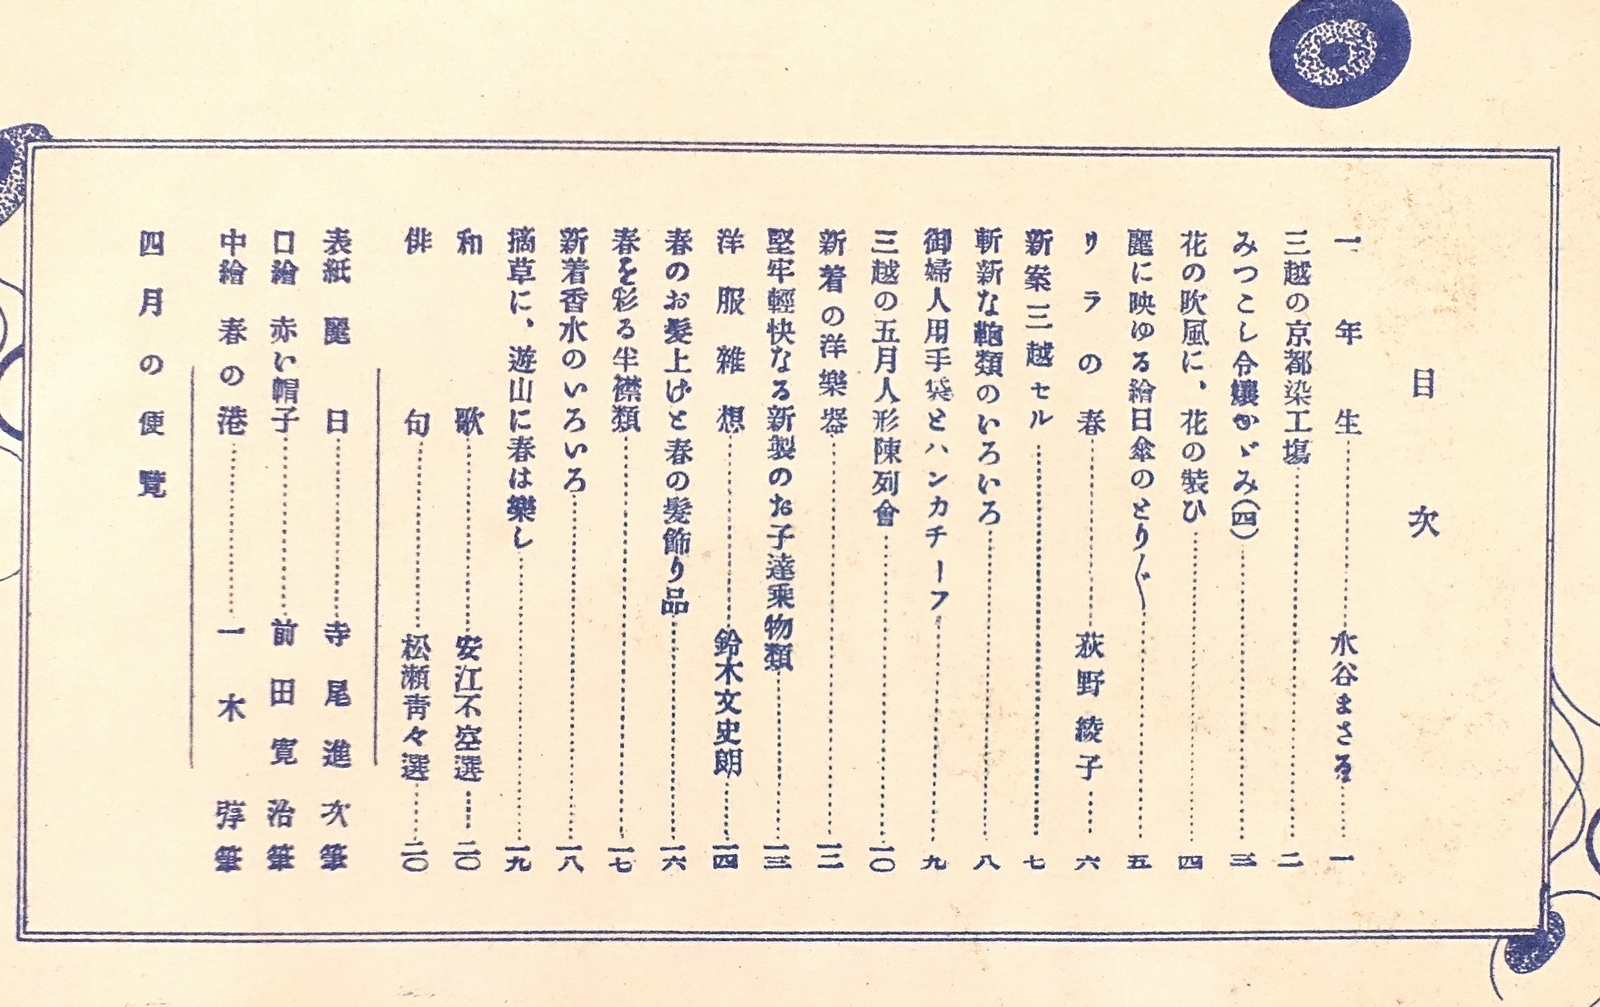 目次
一年生……水谷まさる……一
三越の京都染工場……二
みつこし令嬢かゞみ(四)……三
花の吹風に、花の装ひ……四
麗に映ゆる繪日傘のとり〴〵……五
リラの春……荻野綾子……六
新案三越セル……七
斬新な鞄類のいろいろ……八
御婦人用手袋とハンカチーフ……九
三越の五月人形陳列會……一〇
新着の洋樂器……一二
堅牢輕快なる新製のお子達乘物類……一三
洋服雜想……鈴木文史朗……一四
春のお髮上げと春の髮飾り品……一六
春を彩る半襟類……一七
新着香水のいろいろ……一八
摘草に、遊山に春は樂し……一九
和歌……安江不空選……二〇
俳句……松瀬靑々選……二〇
表紙 麗日……寺尾進次筆
口繪 赤い帽子……前田寛治筆
中繪 春の港……一木弴筆
四月の便覽